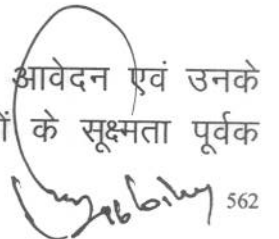 आवेदन एवं उनके
के सूक्ष्मता पूर्वक
562